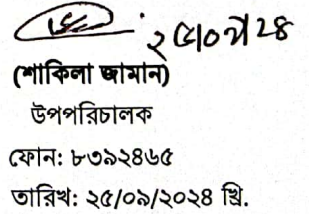 ২৫/০৯/২৪
(শাকিলা জামান)
উপপরিচালক
ফোন: ৮৩৯২৪৬৫
তারিখ: ২৫/০৯/২০২৪ খ্রি.